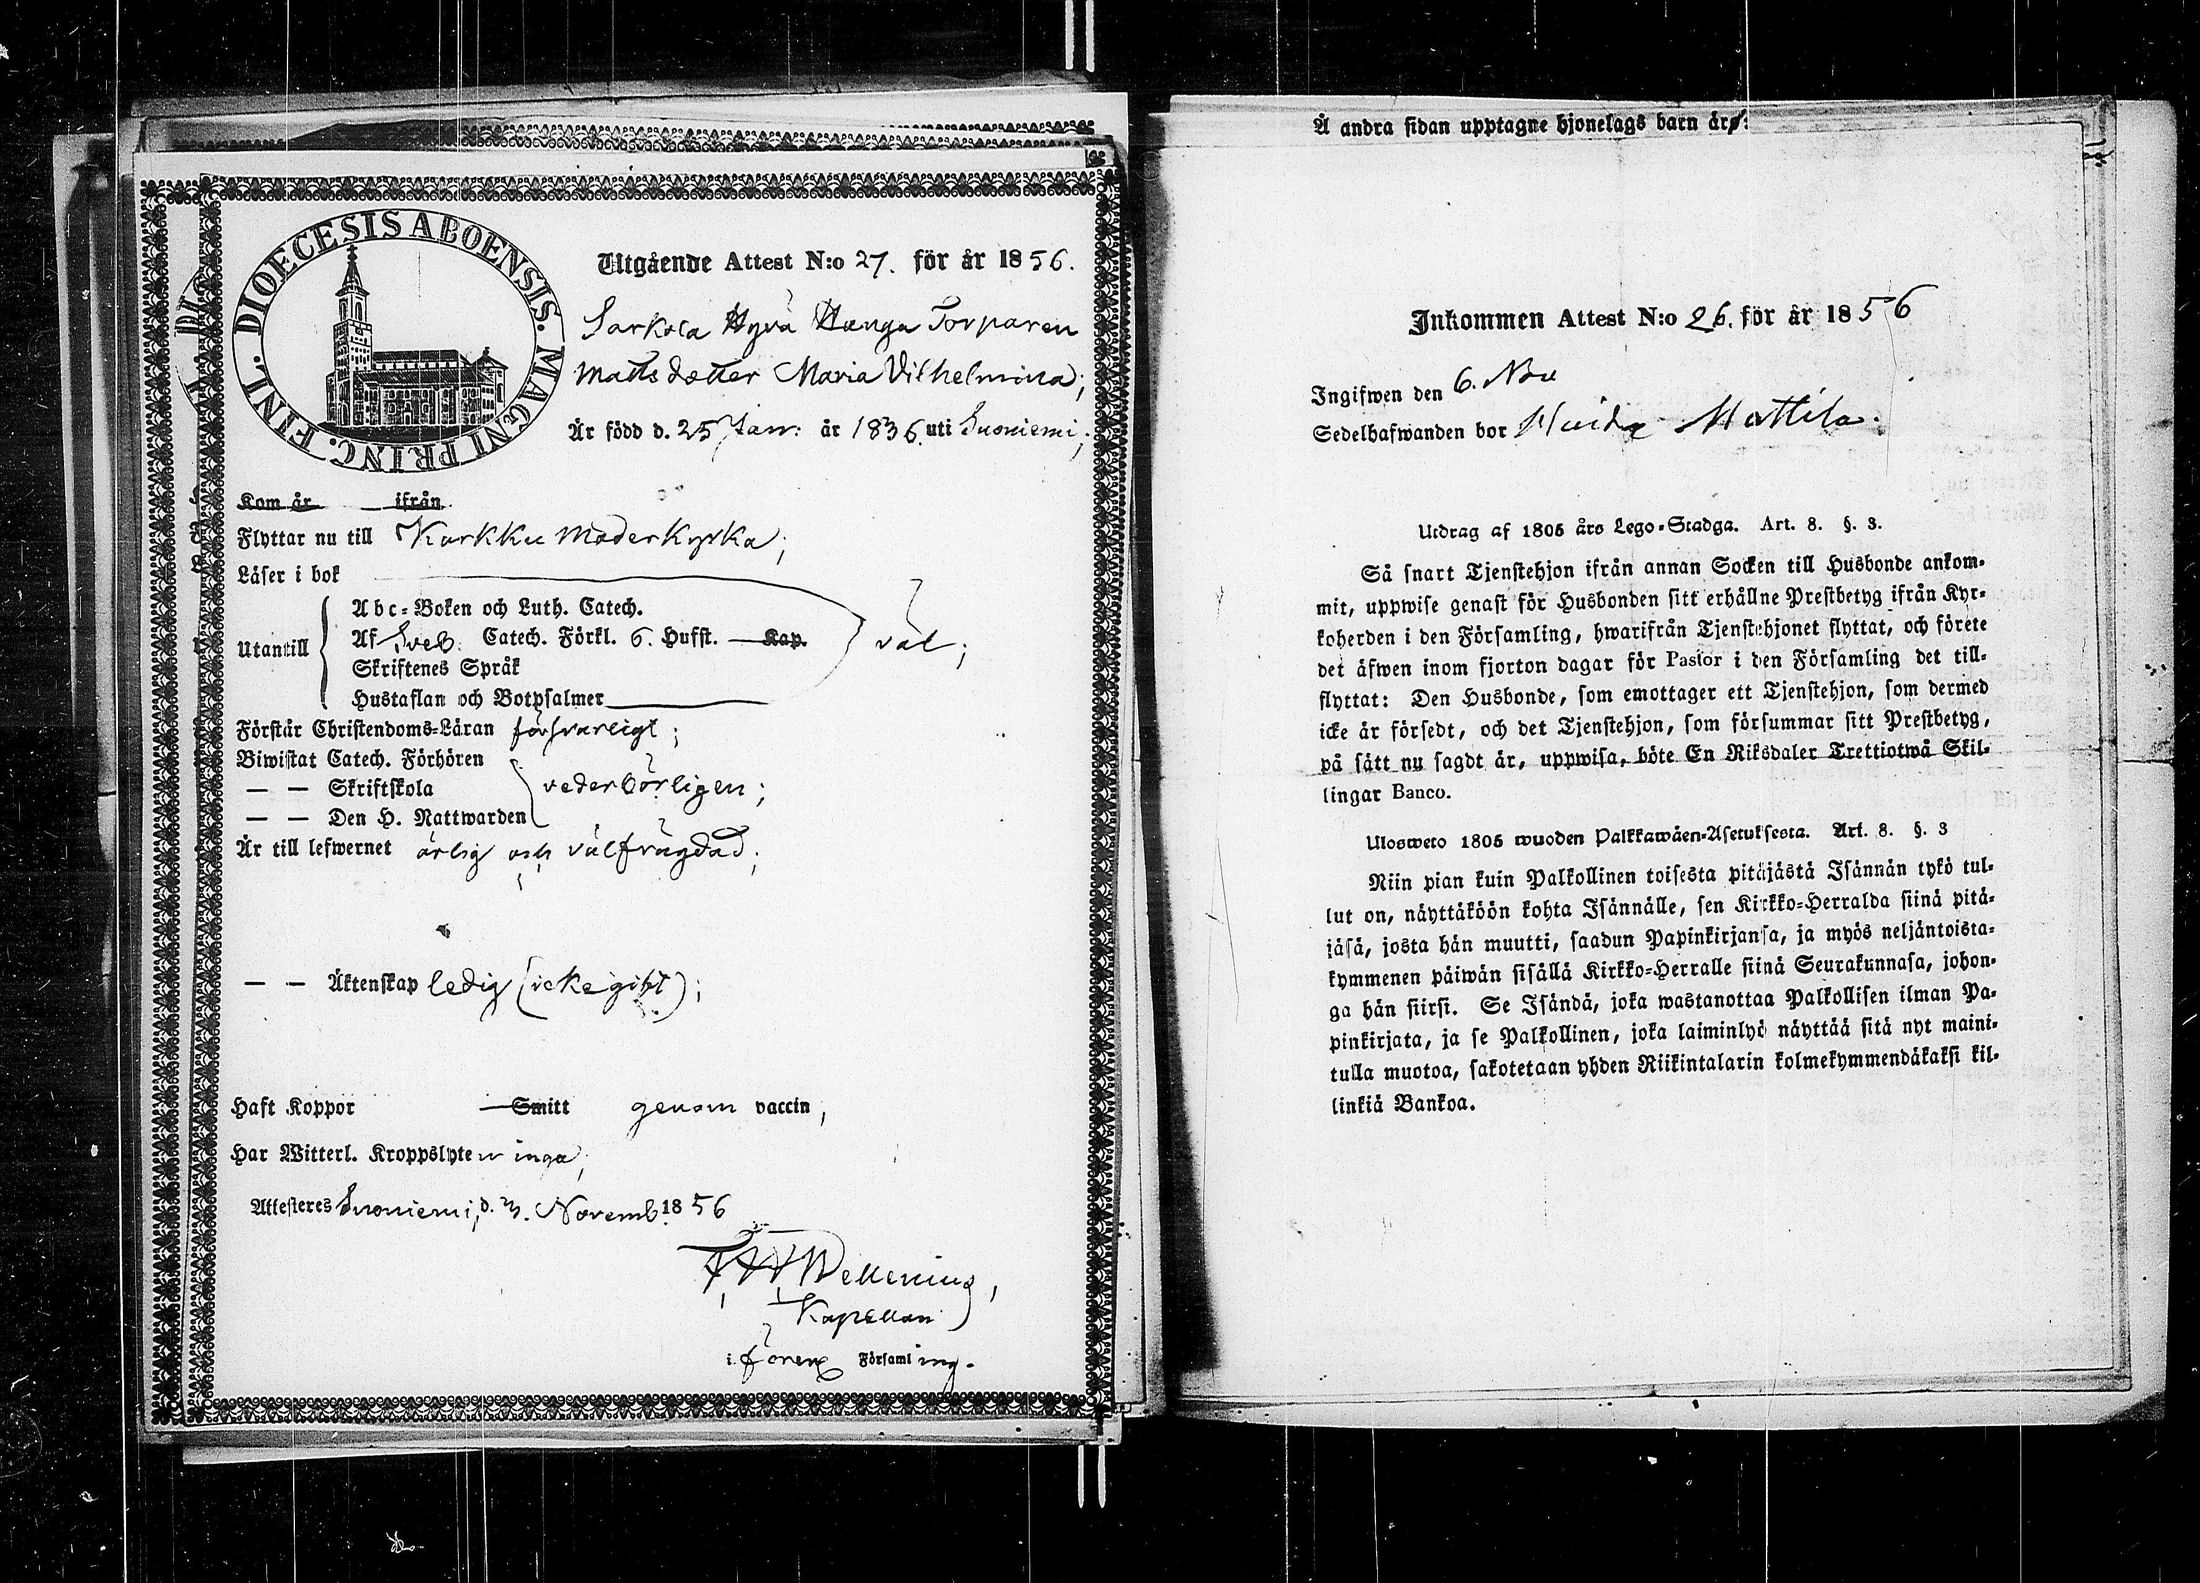 FINL. DIOECESIS ABOENSIS. MAGNI PRINC.
Utgående Attest N:o 27. för år 1856.
Sarkola Hyvä Hanga Torparen
Matts dotter Maria Vilhelmina;
Är född d. 25 Jan: år 1836. uti Suoniemi;
Kom år ifrån
Flyttar nu till Karkku Moderkyrka;
Läser i bok
Abc-Boken och Luth. Catech.
Utantill Af Sveb. Catech. Förkl. 6. Hufst. Kap. väl;
Skriftenes Språk
Hustaflan och Botpsalmer
Förstår Christendoms-Läran försvarligt;
Biwistat Catech. Förhören
— — Skriftskola vederbörligen;
— — Den H. Nattwarden
Är till lefwernet ärlig och välfrägdad;
— — Äktenskap ledig (icke gift);
Haft Koppor Smitt genom vaccin,
Har Witterl. Kroppslyten inga;
Attesteres Suoniemi, d. 3. Novemb. 1856
F W Wellenius,
Kapellan
i. fören. Församling.
Å andra sidan upptagne hjonelags barn äro:
Inkommen Attest N:o 26. för år 1856
Ingifwen den 6. Nov
Sedelhafwanden bor Mattila.
Utdrag af 1805 års Lego-Stadga. Art. 8. §. 3.
Så snart Tjenstehjon ifrån annan Socken till Husbonde ankom-
mit, uppwise genast för Husbonden sitt erhållne Prestbetyg ifrån Kyr-
koherden i den Församling, hwarifrån Tjenstehjonet flyttat, och förete
det äfwen inom fjorton dagar för Pastor i den Församling det till-
flyttat: Den Husbonde, som emottager ett Tjenstehjon, som dermed
icke är försedt, och det Tjenstehjon, som försummar sitt Prestbetyg,
på sätt nu sagdt är, uppwisa, böte En Riksdaler Trettiotwå Skil-
lingar Banco.
Ulosweto 1805 wuoden Palkkawäen-Asetuksesta. Art. 8. §. 3
Niin pian kuin Palkollinen toisesta pitäjästä Isännän tykö tul-
lut on, näyttäköön kohta Isännälle, sen Kirkko-Herralda siinä pitä-
jäsä, josta hän muutti, saadun Papinkirjansa, ja myös neljäntoista-
kymmenen päiwän sisällä Kirkko-Herralle siinä Seurakunnasa, johon-
ga hän siirsi. Se Isändä, joka wastanottaa Palkollisen ilman Pa-
pinkirjata, ja se Palkollinen, joka laiminlyö näyttää sitä nyt maini-
tulla muotoa, sakotetaan yhden Riikintalarin kolmekymmendäkaksi kil-
linkiä Bankoa.